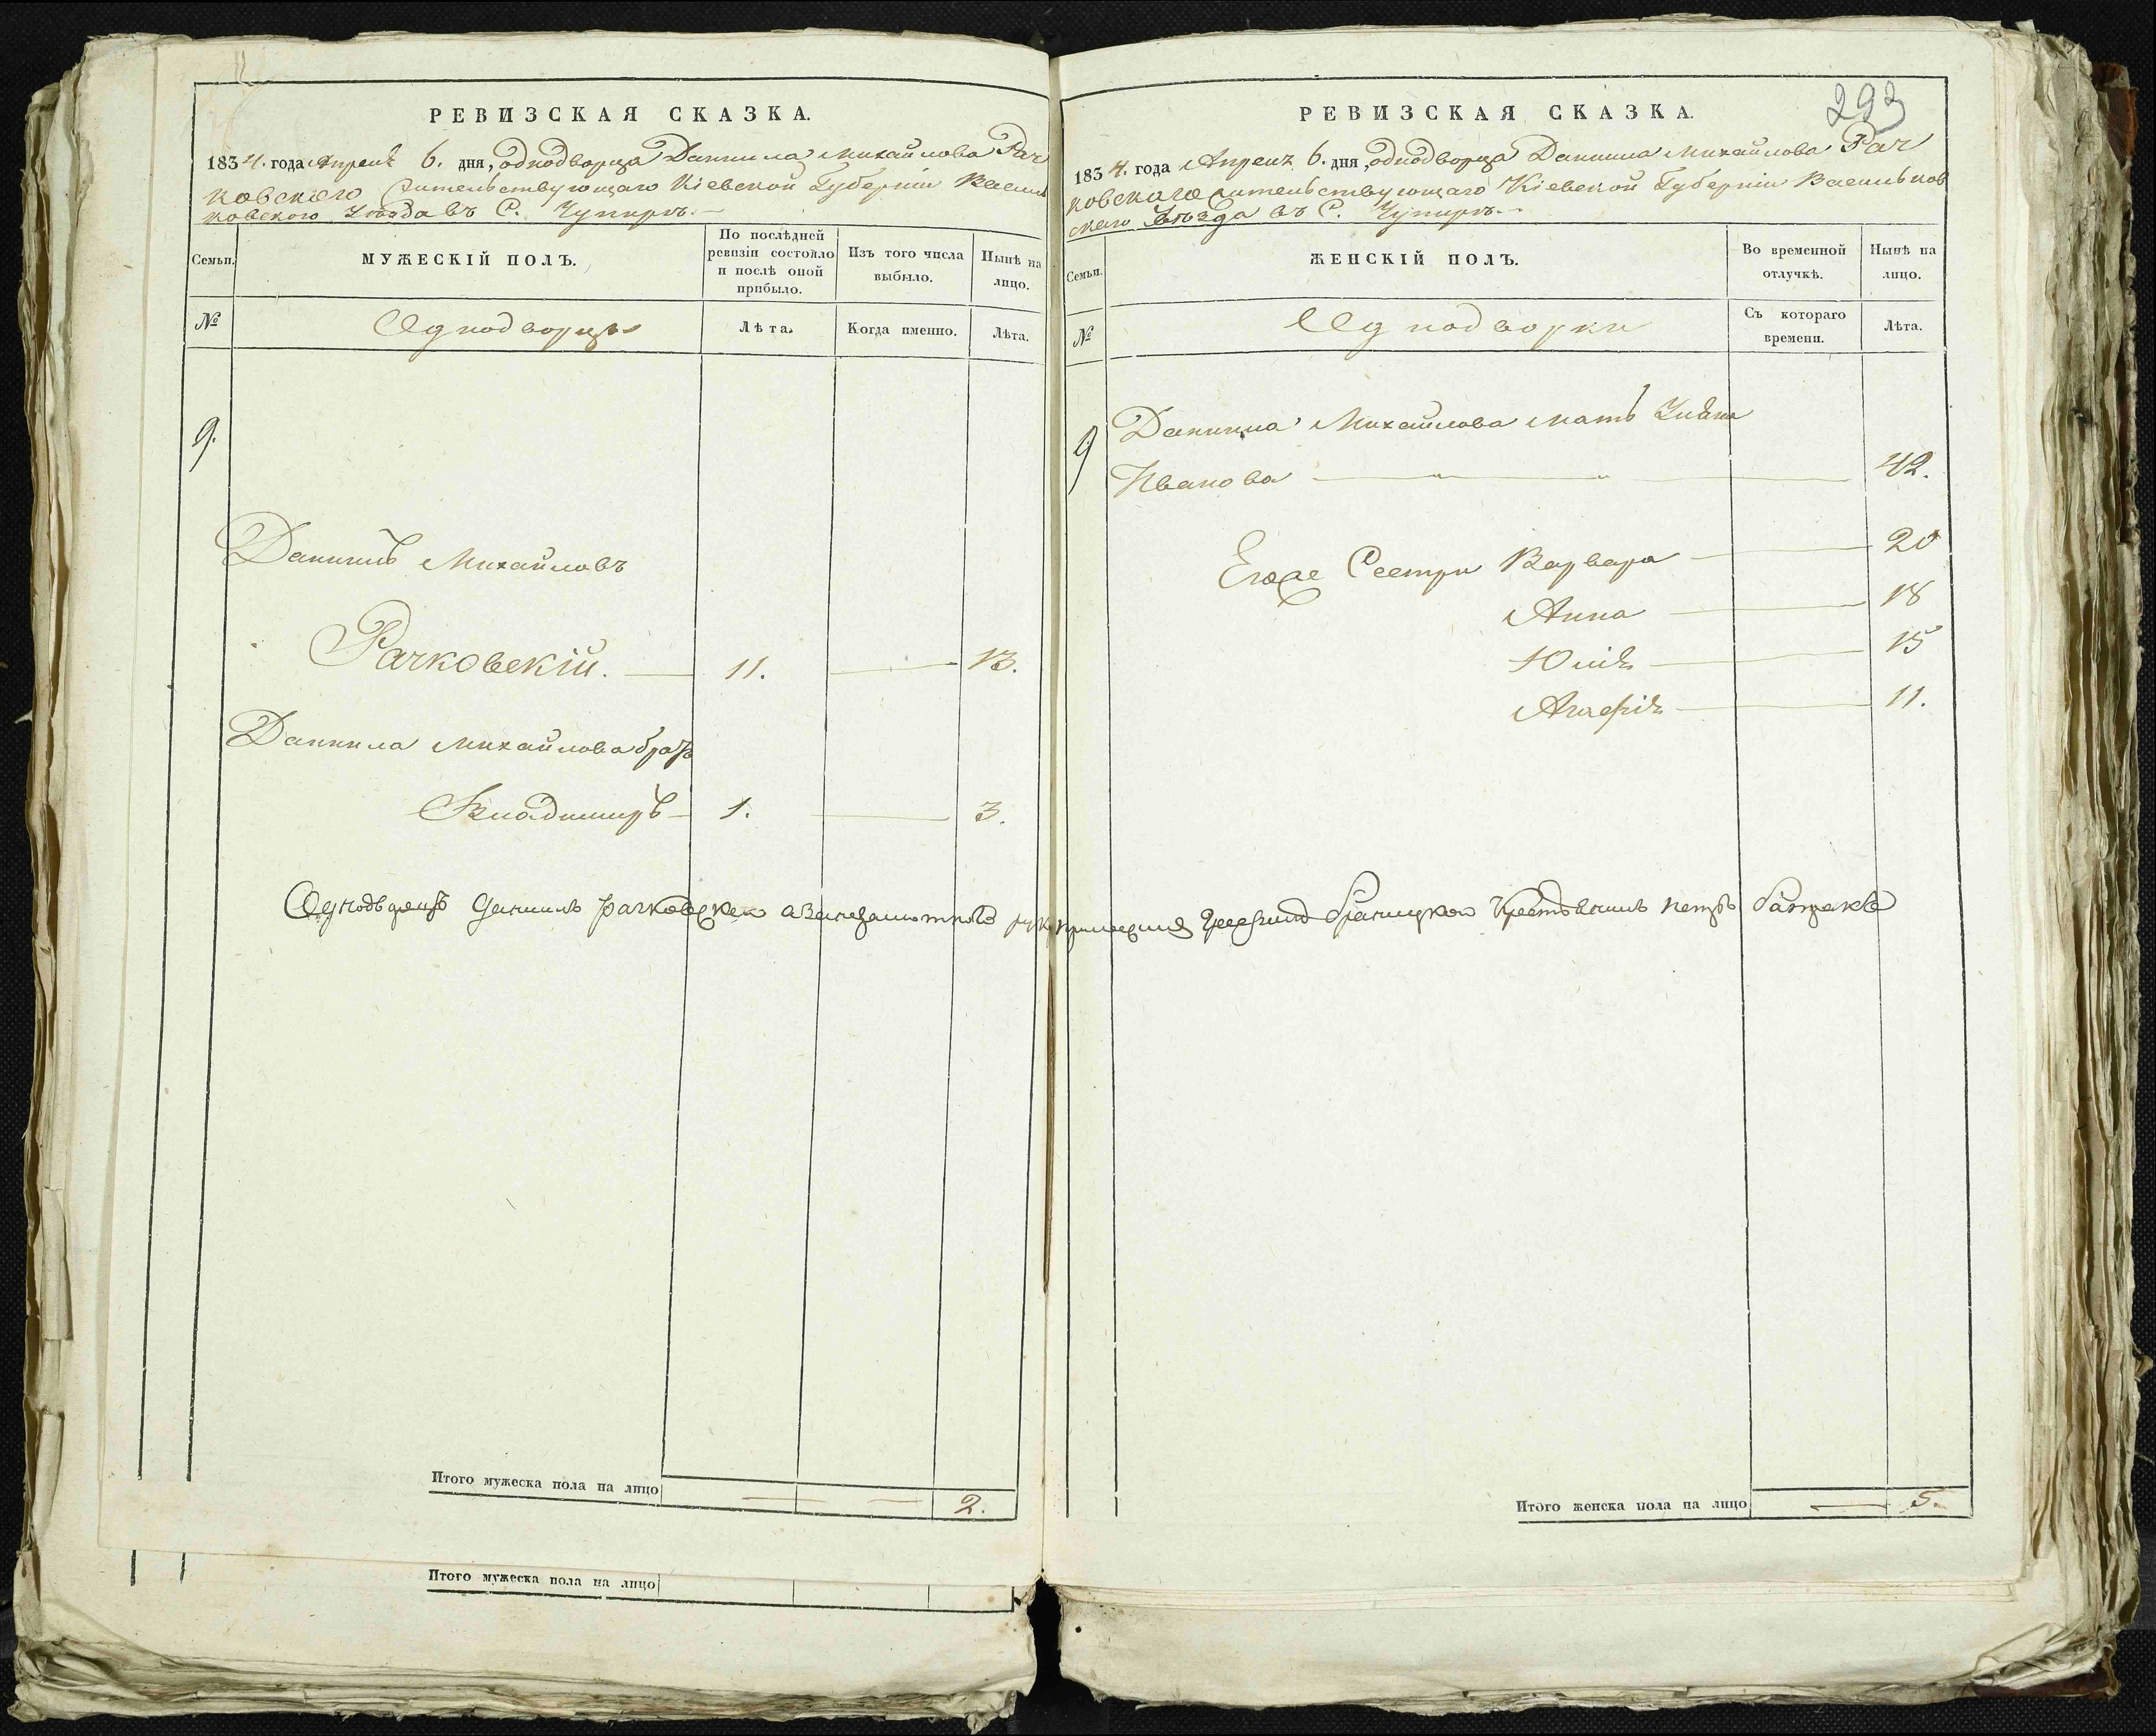 РЕВИЗСКАЯ СКАЗКА.
1834. года Апреля 6. дня, однодворца Даниила Михайлова Рач
ковского жительствующаго Кіевской Губерніи Василь
ковского Уѣзда въ С. Чупирѣ.
Семьи.
МУЖЕСКІЙ ПОЛЪ.
По послѣдней
ревизіи состояло
и послѣ оной
прибыло.
Изъ того числа
выбыло.
Нынѣ на
лицо.
№
Однодворцы
Лѣта.
Когда именно.
Лѣта.
9.
Даниилъ Михайловъ
Рачковскій. 11. 13.
Даниила Михайлова братъ
Владимиръ 1. 3.
Однодворецъ Даниилъ Рачковскій а
Итого мужеска пола на лицо 2.
Итого мужеска пола на лицо
293
РЕВИЗСКАЯ СКАЗКА.
1834. года Апреля 6. дня, однодворца Даниила Михайлова Рач
ковскаго жительствующаго Кіевской Губерніи Васильков
скаго Уѣзда въ С. Чупирѣ.
Семьи.
ЖЕНСКІЙ ПОЛЪ.
Во временной
отлучкѣ.
Нынѣ на
лицо.
№
Однодворки
Съ котораго
времени.
Лѣта.
9
Даниила Михайлова мать
Иванова 42.
Егоже Сестри Варвара 20
Анна 18
Юлія 15
Агафія 11.
Браницкой
Итого женска пола на лицо 5.